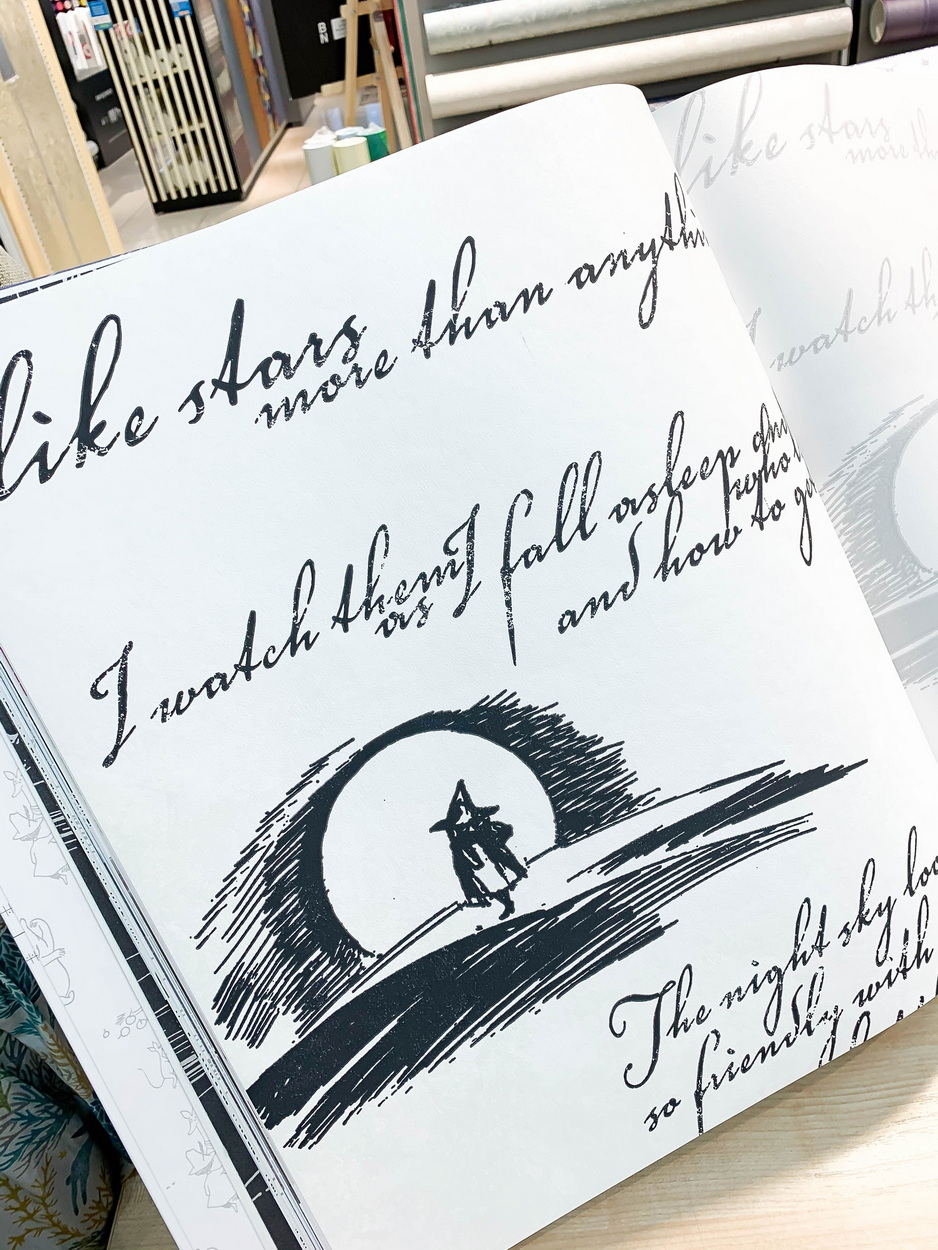 like stars
more than anythin
I watch them
as I fall asleep and
who
and how to ge
The night sky loo
so friendly with
like stars
more th
watch th